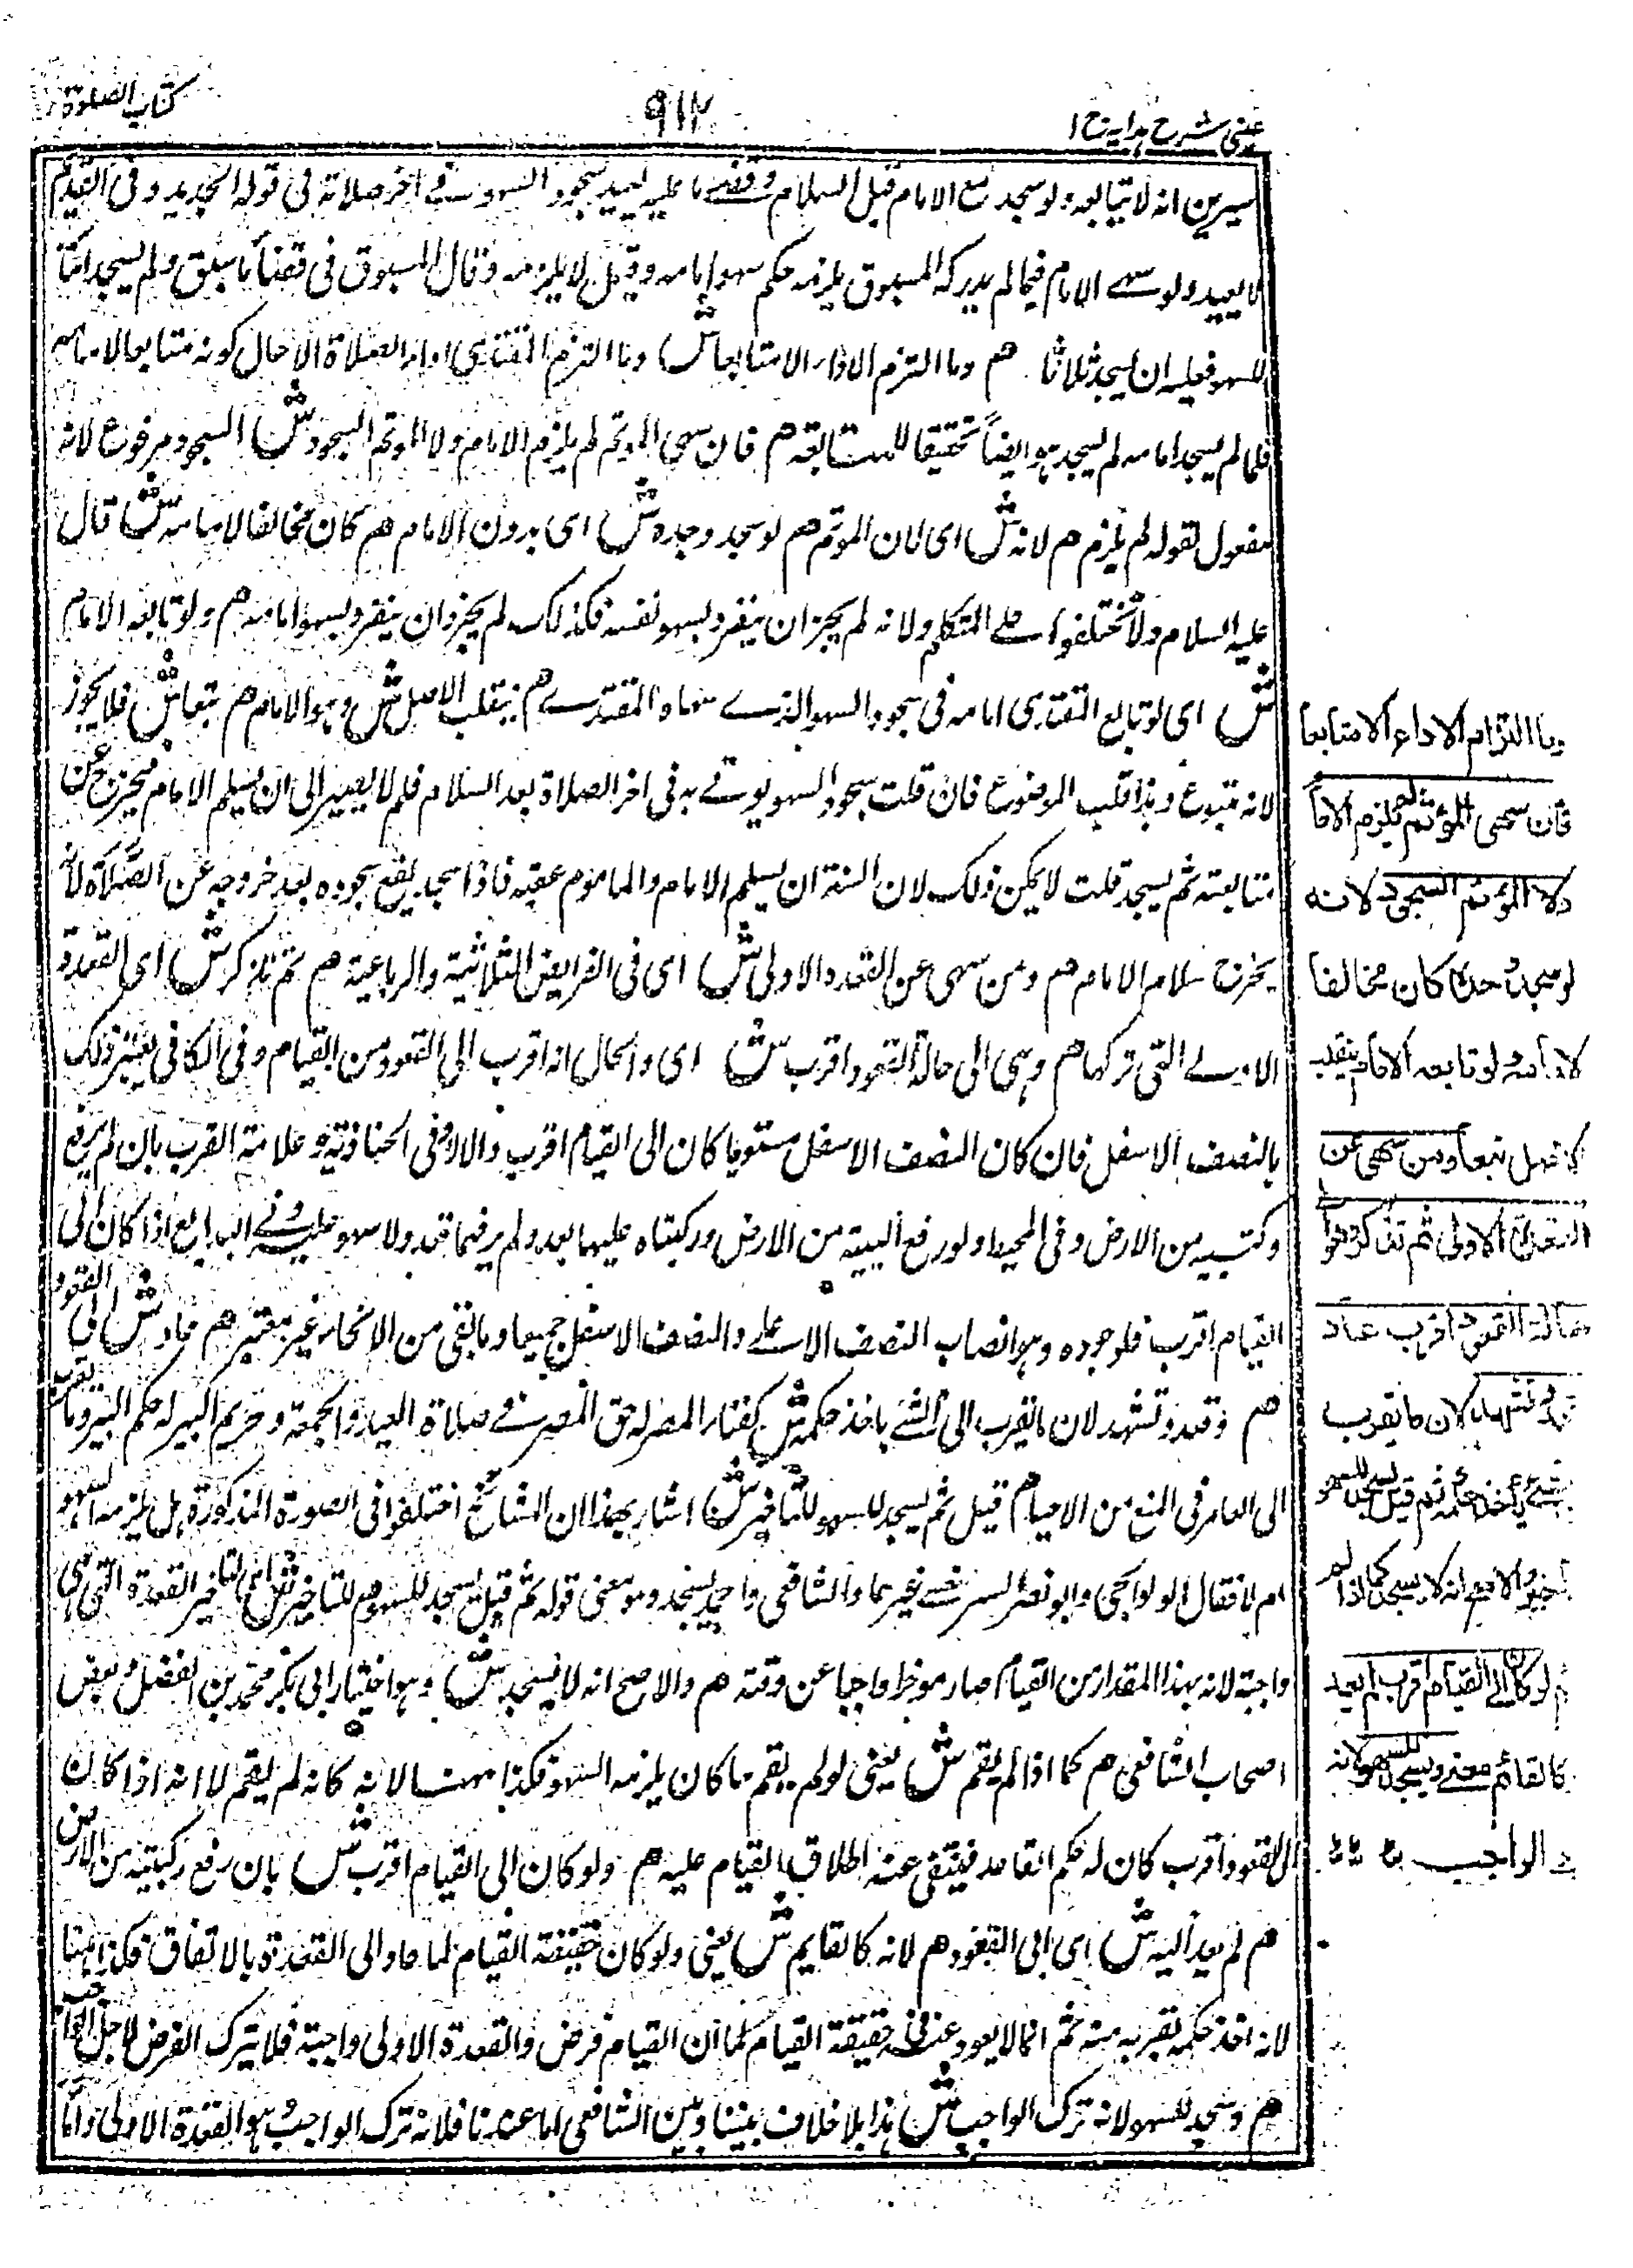 عینی شرح ہدایہ ج ۱
۹۱۲
کتاب الصلوة
سیرین انہ لا یتابعہ ولو سجد مع الامام قبل السلام وقضی ما علیہ یعید سجود السہو فی آخر صلاتہ فی قولہ الجدید وفی القدیم
لا یعید ولو سہی الامام فیما لم یدرکہ المسبوق یلزمہ حکم سہو امامہ وقیل لا یلزمہ وقال المسبوق فی قضاء ما سبق ولم یسجد
للسہو فعلیہ ان یسجد ثلاثا ھم وما التزم الاداء الا متابعا ش وما التزم المقتدی اداء الصلاة الا حال کونہ متابعا لامامہ
فلما لم یسجد امامہ لم یسجد ہو ایضاً تحقیقا للمتابعة ھم فان سہی الموتم لم یلزم الامام ولا الموتم السجود ش السجود مرفوع لانہ
مفعول لقولہ لم یلزم ھم لانہ ش ای لان الموتم ھم لو سجد وحدہ ش ای بدون الامام ھم کان مخالفا لامامہ ش قال
علیہ السلام ولا تختلفوا علی ولانہ لم یجز ان ینفرد بسہو نفسہ فکذلک لم یجز ان ینفرد بسہو امامہ ھم ولو تابعہ الامام
ش ای لو تابع المقتدی امامہ فی سجود السہو الذی سہاہ المقتدی ھم ینقلب الاصل ش وہو الامام ھم تبعا ش فلا یجوز
لانہ متبوع وہذا قلب الموضوع فان قلت سجود السہو یوتی بہ فی اخر الصلاة بعد السلام فلم لا یصیر الی ان یسلم الامام فیخرج عن
متابعتہ ثم یسجد قلت لا یمکن ذلک لان السنة ان یسلم الامام والماموم عقیبہ فاذا سجد یقع سجودہ بعد خروجہ عن الصلاة لانہ
یخرج بسلام الامام ھم ومن سہی عن القعدة الاولی ش ای فی الفرایض الثلاثیة والرباعیة ھم ثم تذکر ش ای القعدة
الاولی التی ترکہا ھم وہی الی حالة القعود اقرب ش ای والحال انہ اقرب الی القعود من القیام وفی الکافی یعتبر ذلک
بالنصف الاسفل فان کان النصف الاسفل مستویا کان الی القیام اقرب والا لا وفی علامة القرب بان لم یرفع
رکبتیہ من الارض وفی المحیط ولو رفع الیتیہ من الارض ورکبتاہ علیہا بعد ولم یرفعہما قعد ولا سہو علیہ وفی البدایع اذا کان الی
القیام اقرب فلوجودہ وہو انتصاب النصف الاعلی والنصف الاسفل جمیعا وما بقی من الانحناء غیر معتبر ھم عاد ش الی القعود
ھم وقعد وتشہد لان ما یقرب الی الشئ یاخذ حکمہ ش کفناء المصر لہ حق المصر فی صلاة العید والجمعة وحریم البیر لہ حکم البیر وما یقرب
الی العامر فی المنع من الاحیاء ھم قیل ثم یسجد للسہو للتاخیر ش اشار بہذا ان المشائخ اختلفوا فی الصورة المذکورة ہل یلزمہ السہو
ام لا فقال الولوالجی وغیرہما والشافعی واحمد یسجد ومعنی قولہ ثم قیل یسجد للسہو ھم للتاخیر ش ای لتاخیر القعدة التی ہی
واجبة لانہ بہذا المقدار من القیام صار موخرا واجبا عن وقتہ ھم والاصح انہ لا یسجد ش وہو اختیار ابی بکر محمد بن الفضل وبعض
اصحاب الشافعی ھم کما اذا لم یقم ش یعنی لو لم یقم ما کان یلزمہ السہو فکذا ہہنا لانہ کانہ لم یقم لانہ اذا کان
الی القعود اقرب کان لہ حکم القاعد فینتفی عنہ اطلاق القیام علیہ ھم ولو کان الی القیام اقرب ش بان رفع رکبتیہ من الارض
ھم لم یعد الیہ ش ای الی القعود ھم لانہ کالقایم ش یعنی ولو کان حقیقة القیام لما عاد الی القعدة بالاتفاق فکذا ہہنا
لانہ اخذ حکمہ بقربہ منہ ثم انما لا یعود عند فی حقیقة القیام لما ان القیام فرض والقعدة الاولی واجبة فلا یترک الفرض لاجل الواجب
ھم وسجد للسہو لانہ ترک الواجب ش ہذا بلا خلاف بیننا وبین الشافعی اما عندنا فلانہ ترک الواجب وہو القعدة الاولی واما
وما التزم الاداء الا متابعا
فان سھی المؤتم لم یلزم الاما
ولا المؤتم السجود لانه
لو سجد وحدہ کان مخالفا
لامامہ ولو تابعہ الامام ینقلب
الاصل تبعا ومن سھی عن
القعدة الاولی ثم تذکر وھو
حالة القعود اقرب عاد
وتشھد لان ما یقرب
یأخذ حکمہ ثم قیل یسجد للسہو
للتاخیر والاصح انه لا یسجد کما اذا لم
ولو کان الی القیام اقرب لم یعد
کالقائم معنی ویسجد للسہو لانہ
الواجب